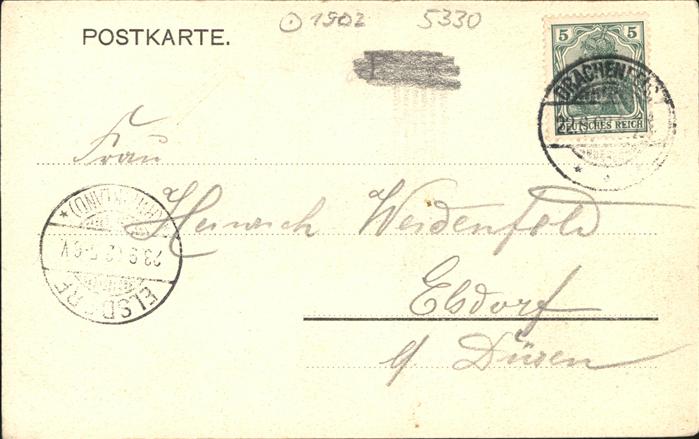 1902 5330
POSTKARTE.
5 5
DEUTSCHES REICH
DRACHENFELS
Frau
Heinrich Weidenfeld
Elsdorf
b/ Düren
ELSDORF
(RHEINLAND)
23.9.02 5-6V